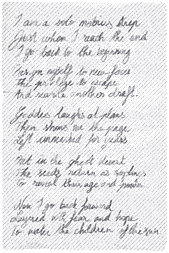 I am a solo mobius strip
Just when I reach the end
I go back to the beginning
Resign myself to new faces
The privilege to escape
And rewrite another draft.
Goddess laughs at plans
Then shows me the page
Left unmarked for years
But in the ghost desert
The seeds return as saplings
To reveal their age and power
Now I go back forward
Layered with fear and hope
To water the children of the sun